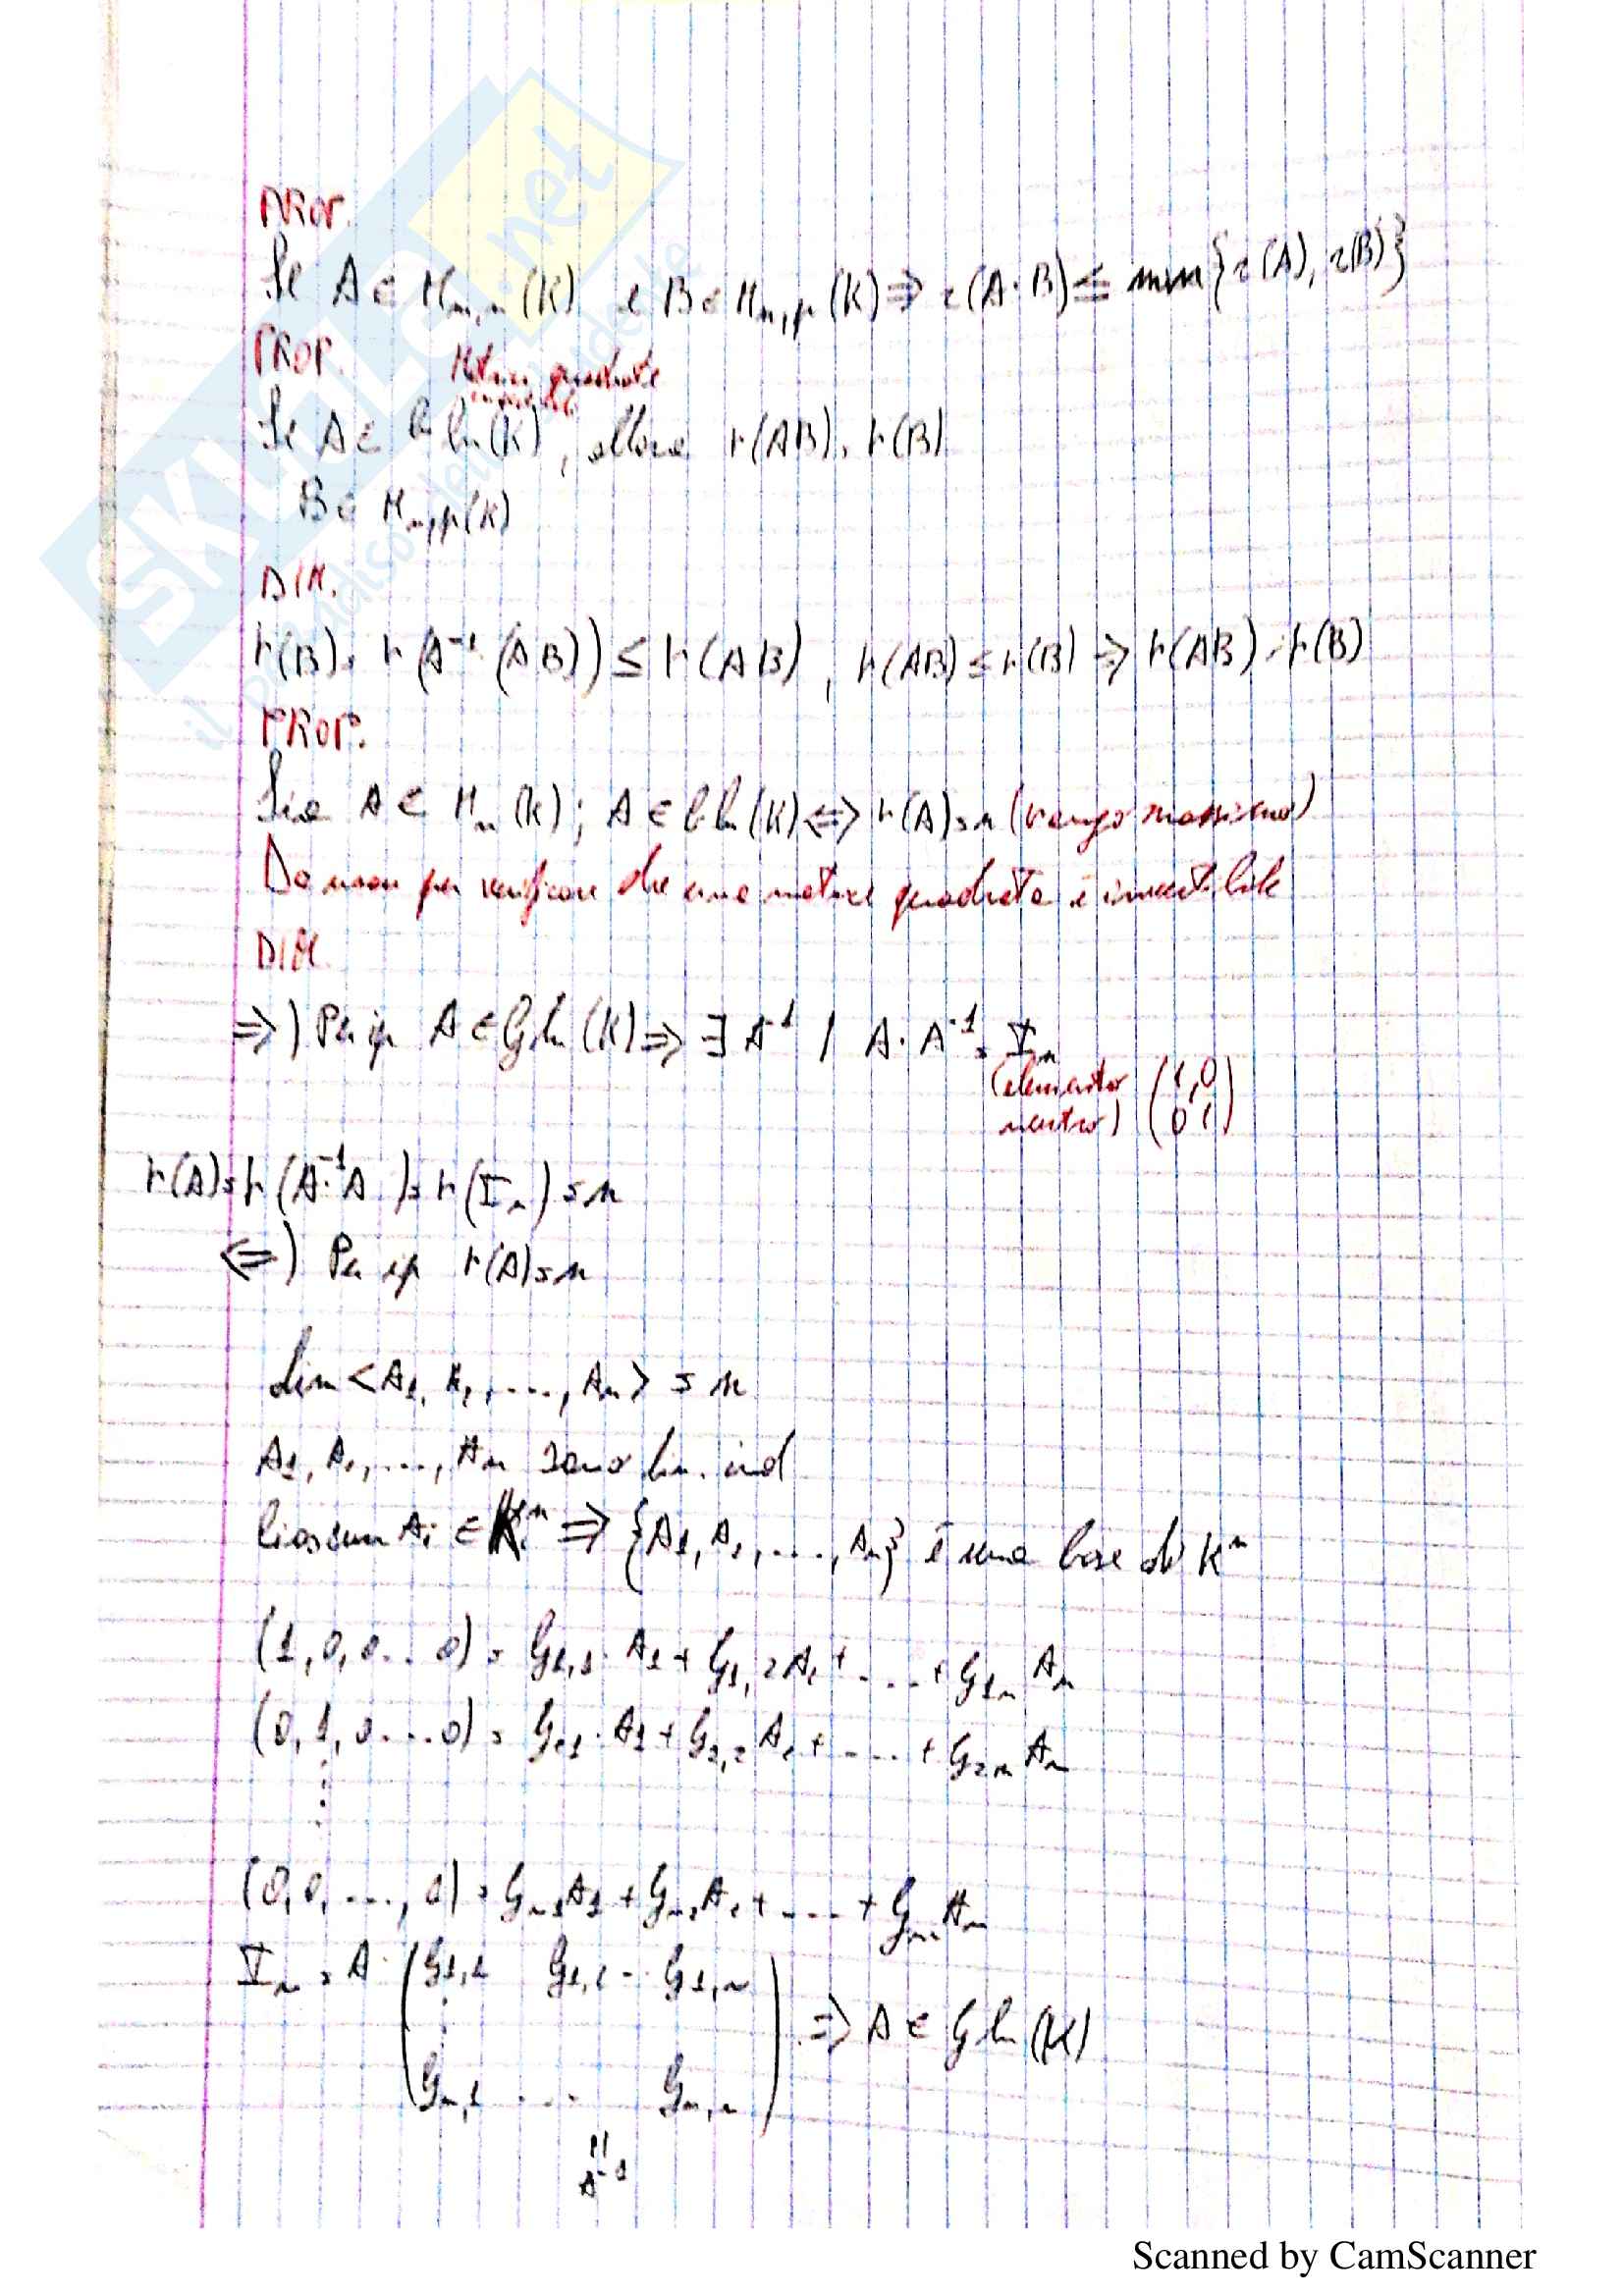 PROP.
Se A ∈ M_{m,n}(K) e B ∈ M_{n,p}(K) ⇒ r(A·B) ≤ min{r(A), r(B)}
PROP. Matrici quadrate
invertibili
Se A ∈ Gln(K), allora r(AB) = r(B)
B ∈ M_{n,p}(K)
DIM.
r(B) = r(A⁻¹(AB)) ≤ r(AB), r(AB) ≤ r(B) ⇒ r(AB) = r(B)
PROP.
Sia A ∈ M_n(K); A ∈ Gln(K) ⇔ r(A) = n (rango massimo)
Da usare per verificare che una matrice quadrata è invertibile
DIM.
⇒) Per ip A ∈ Gln(K) ⇒ ∃ A⁻¹ / A·A⁻¹ = I_n
(elemento (1,0
neutro) 0 1)
r(A) = r(A⁻¹·A) = r(I_n) = n
⇐) Per ip r(A) = n
dim <A1, A2, ...., An> = n
A1, A2, ..., An sono lin. ind
Ciascun Ai ∈ K^n ⇒ {A1, A2, ...., An} è una base di K^n
(1,0,0...0) = G1,1·A1 + G1,2A2 + .... + G1n An
(0,1,0....0) = G21·A1 + G2,2A2 + .... + G2n An
⋮
(0,0,...,0) = Gn1A1 + Gn2A2 + .... + Gnn An
I_n = A·(G1,1 G1,2 .. G1,n
⋮ ) ⇒ A ∈ Gln(K)
Gn,1 .... Gn,n
||
A⁻¹
SKUOLA.net
il paradiso dello studente
Scanned by CamScanner